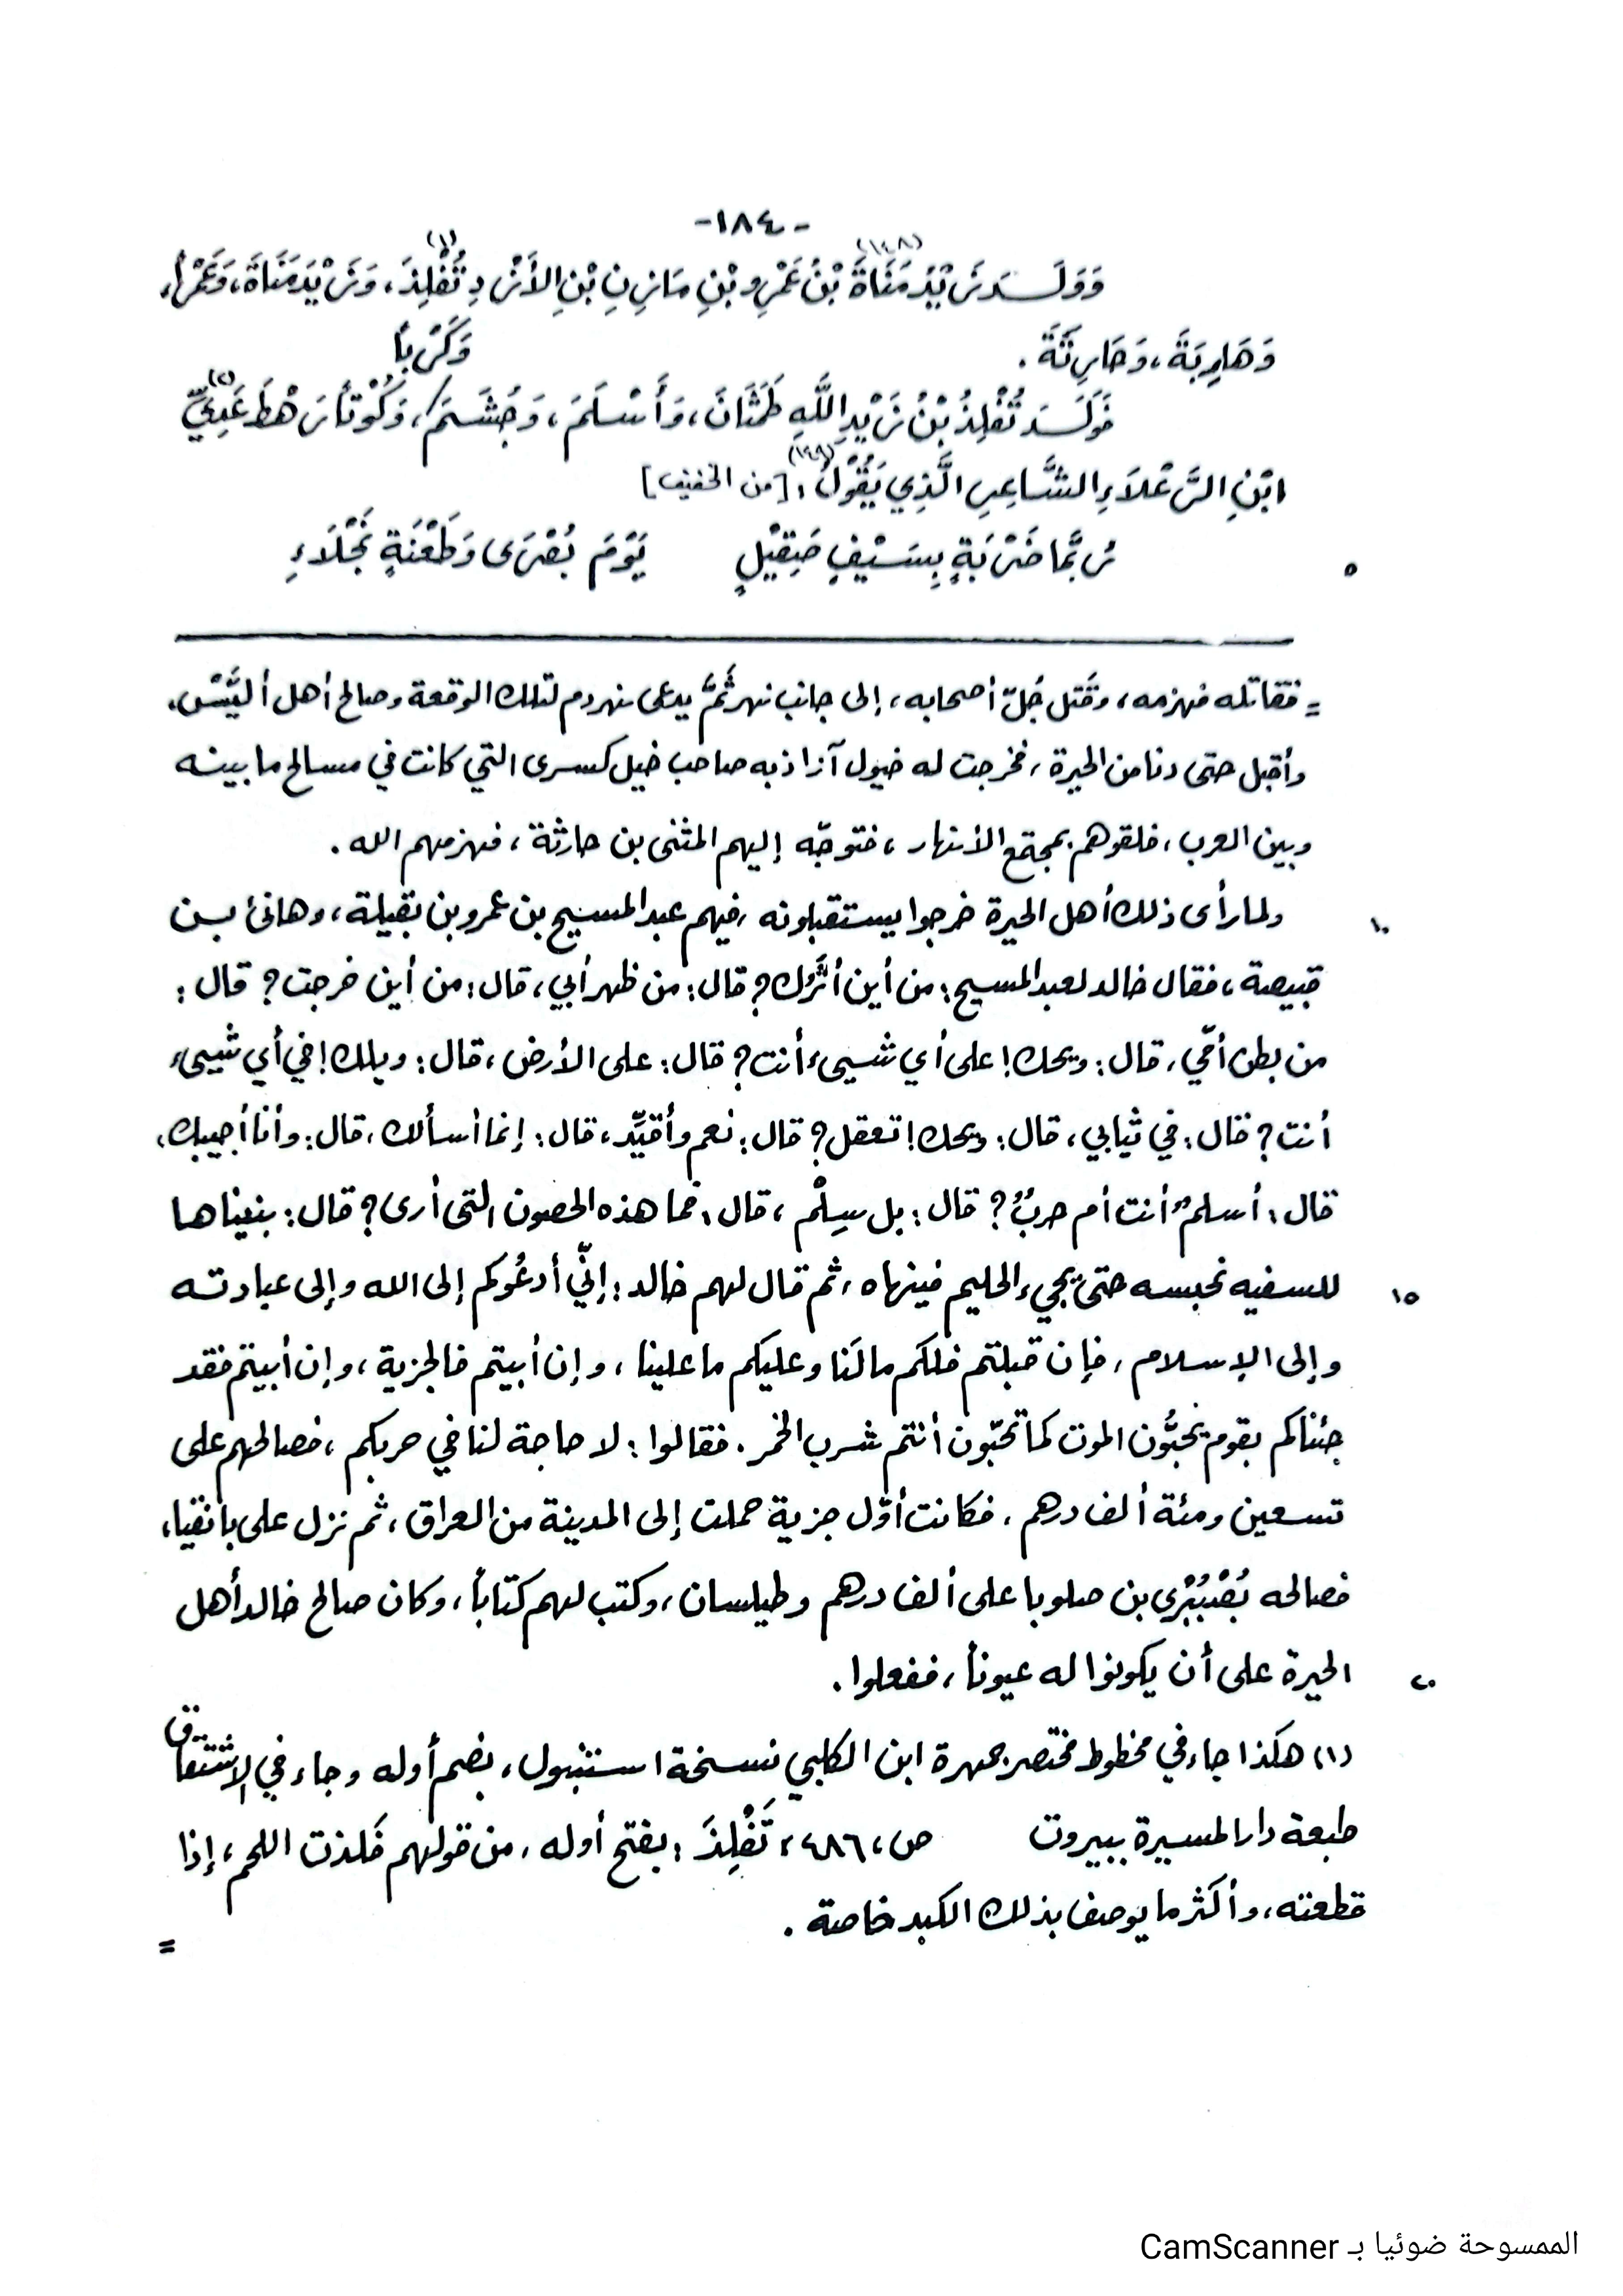 -١٨٤-
وَوَلَدَ زَيْدُ مَنَاةَ (١٤٨) بْنُ عَمْرِو بْنِ مَازِنِ بْنِ الأَزْدِ تُفْلِذَ (١)، وَزَيْدَ مَنَاةَ، وَعَمْراً،
وَهَارِبَةَ، وَحَارِثَةَ .
فَوَلَدَ تُفْلِذُ بْنُ زَيْدِ اللَّهِ طَمَثَانَ، وَأَسْلَمَ، وَجُشَمَ، وَكَرْباً، وَكُوْتاً رَهْطَ عَدِيِّ (٢)
ابْنِ الرَّعْلَاءِ الشَّاعِرِ الَّذِي يَقُوْلُ (١٤٩): [من الخفيف]
٥ رُبَّمَا ضَرْبَةٍ بِسَيْفٍ صَقِيْلٍ يَوْمَ بُصْرَى وَطَعْنَةٍ نَجْلَاءِ
= فقاتله فهزمه، وقَتل جُلّ أصحابه، إلى جانب نهر ثَمَّ يدعى نهر دم لتلك الوقعة وصالح أهل أُليَّسْ،
وأقبل حتى دنا من الحيرة، فخرجت له خيول آزاذبه صاحب خيل كسرى التي كانت في مسالح ما بينه
وبين العرب، فلقوهم بمجتمع الأنهار، فتوجّه إليهم المثنى بن حارثة، فهزمهم الله .
١٠ ولما رأى ذلك أهل الحيرة خرجوا يستقبلونه، فيهم عبد المسيح بن عمرو بن بقيلة، وهانئ بن
قبيصة، فقال خالد لعبد المسيح: من أين أثَرُك؟ قال: من ظهر أبي، قال: من أين خرجت؟ قال:
من بطن أمّي، قال: ويحك! على أي شيىء أنت؟ قال: على الأرض، قال: ويلك! في أي شيىء
أنت؟ قال: في ثيابي، قال: ويحك! تعقل؟ قال: نعم وأقيِّد، قال: إنما أسألك، قال: وأنا أجيبك،
قال: أسلمٌ أنت أم حربٌ؟ قال: بل سِلْم، قال: فما هذه الحصون التي أرى؟ قال: بنيناها
١٥ للسفيه نحبسه حتىّ يجيء الحليم فينهاه، ثم قال لهم خالد: إنّي أدعُوكم إلى الله وإلى عبادته
وإلى الإسلام، فإن قبلتم فلكم ما لَنا وعليكم ما علينا، وإن أبيتم فالجزية، وإن أبيتم فقد
جئناكم بقوم يحبُّون الموت كما تحبّون أنتم شرب الخمر . فقالوا: لا حاجة لنا في حربكم، فصالحهم على
تسعين ومئة ألف درهم، فكانت أوّل جزية حملت إلى المدينة من العراق، ثم نزل على بانقيا،
فصالحه بُصْبُهْرى بن صلوبا على ألف درهم وطيلسان، وكتب لهم كتاباً، وكان صالح خالد أهل
٢٠ الحيرة على أن يكونوا له عيوناً، ففعلوا .
(١) هكذا جاء في مخطوط مختصر جمهرة ابن الكلبي نسخة استنبول، بضم أوله وجاء في الاشتقاق
طبعة دار المسيرة ببيروت ص، ٤٨٦، تَفْلِذَ: بفتح أوله، من قولهم فَلذت اللحم، إذا
قطعته، وأكثر ما يوصف بذلك الكبد خاصة .
=
الممسوحة ضوئيا بـ CamScanner